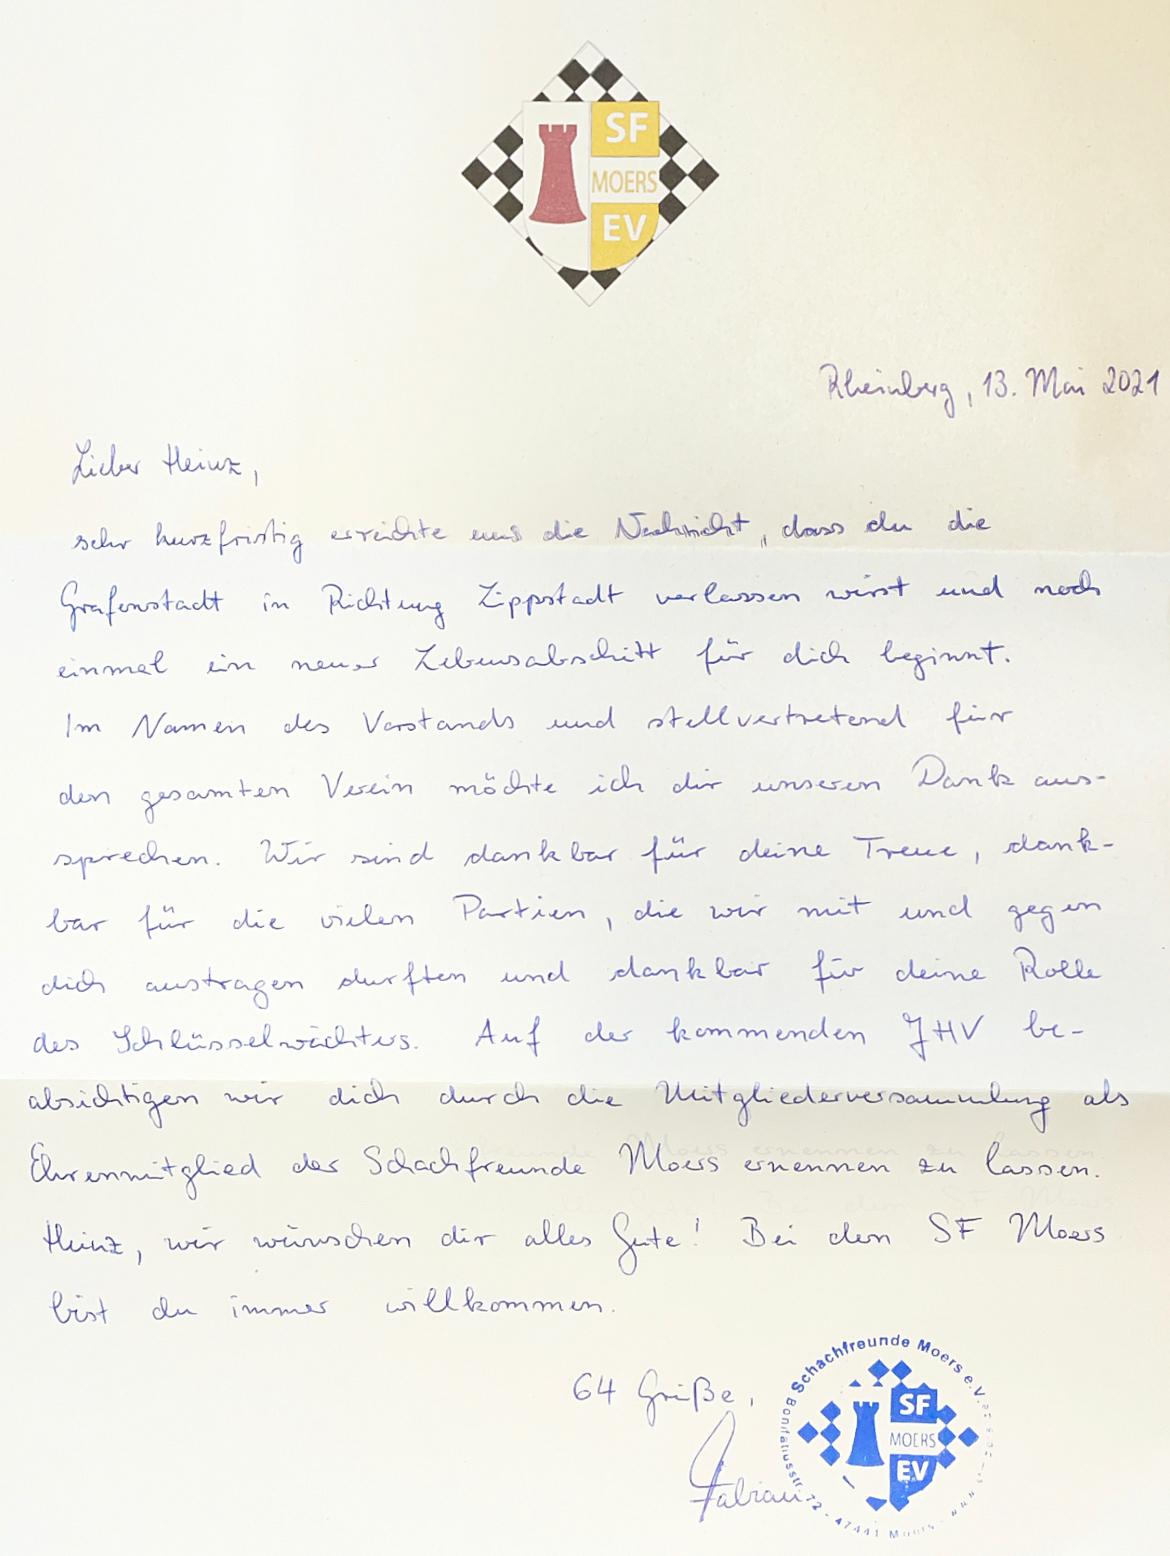 SF
MOERS
EV
Rheinberg, 13. Mai 2021
Lieber Heinz,
sehr kurzfristig erreichte uns die Nachricht, dass du die
Grafenstadt in Richtung Lippstadt verlassen wirst und noch
einmal ein neuer Lebensabschitt für dich beginnt.
Im Namen des Vorstands und stellvertretend für
den gesamten Verein möchte ich dir unseren Dank aus-
sprechen. Wir sind dankbar für deine Treue, dank-
bar für die vielen Partien, die wir mit und gegen
dich austragen durften und dankbar für deine Rolle
des Schlüsselwächters. Auf der kommenden JHV be-
absichtigen wir dich durch die Mitgliederversammlung als
Ehrenmitglied der Schachfreunde Moers ernennen zu lassen.
Heinz, wir wünschen dir alles Gute! Bei den SF Moers
bist du immer willkommen.
64 Grüße,
Fabian
Schachfreunde Moers e.V.
SF
MOERS
EV
Bonifatiusstr. 12 - 47441 Moers